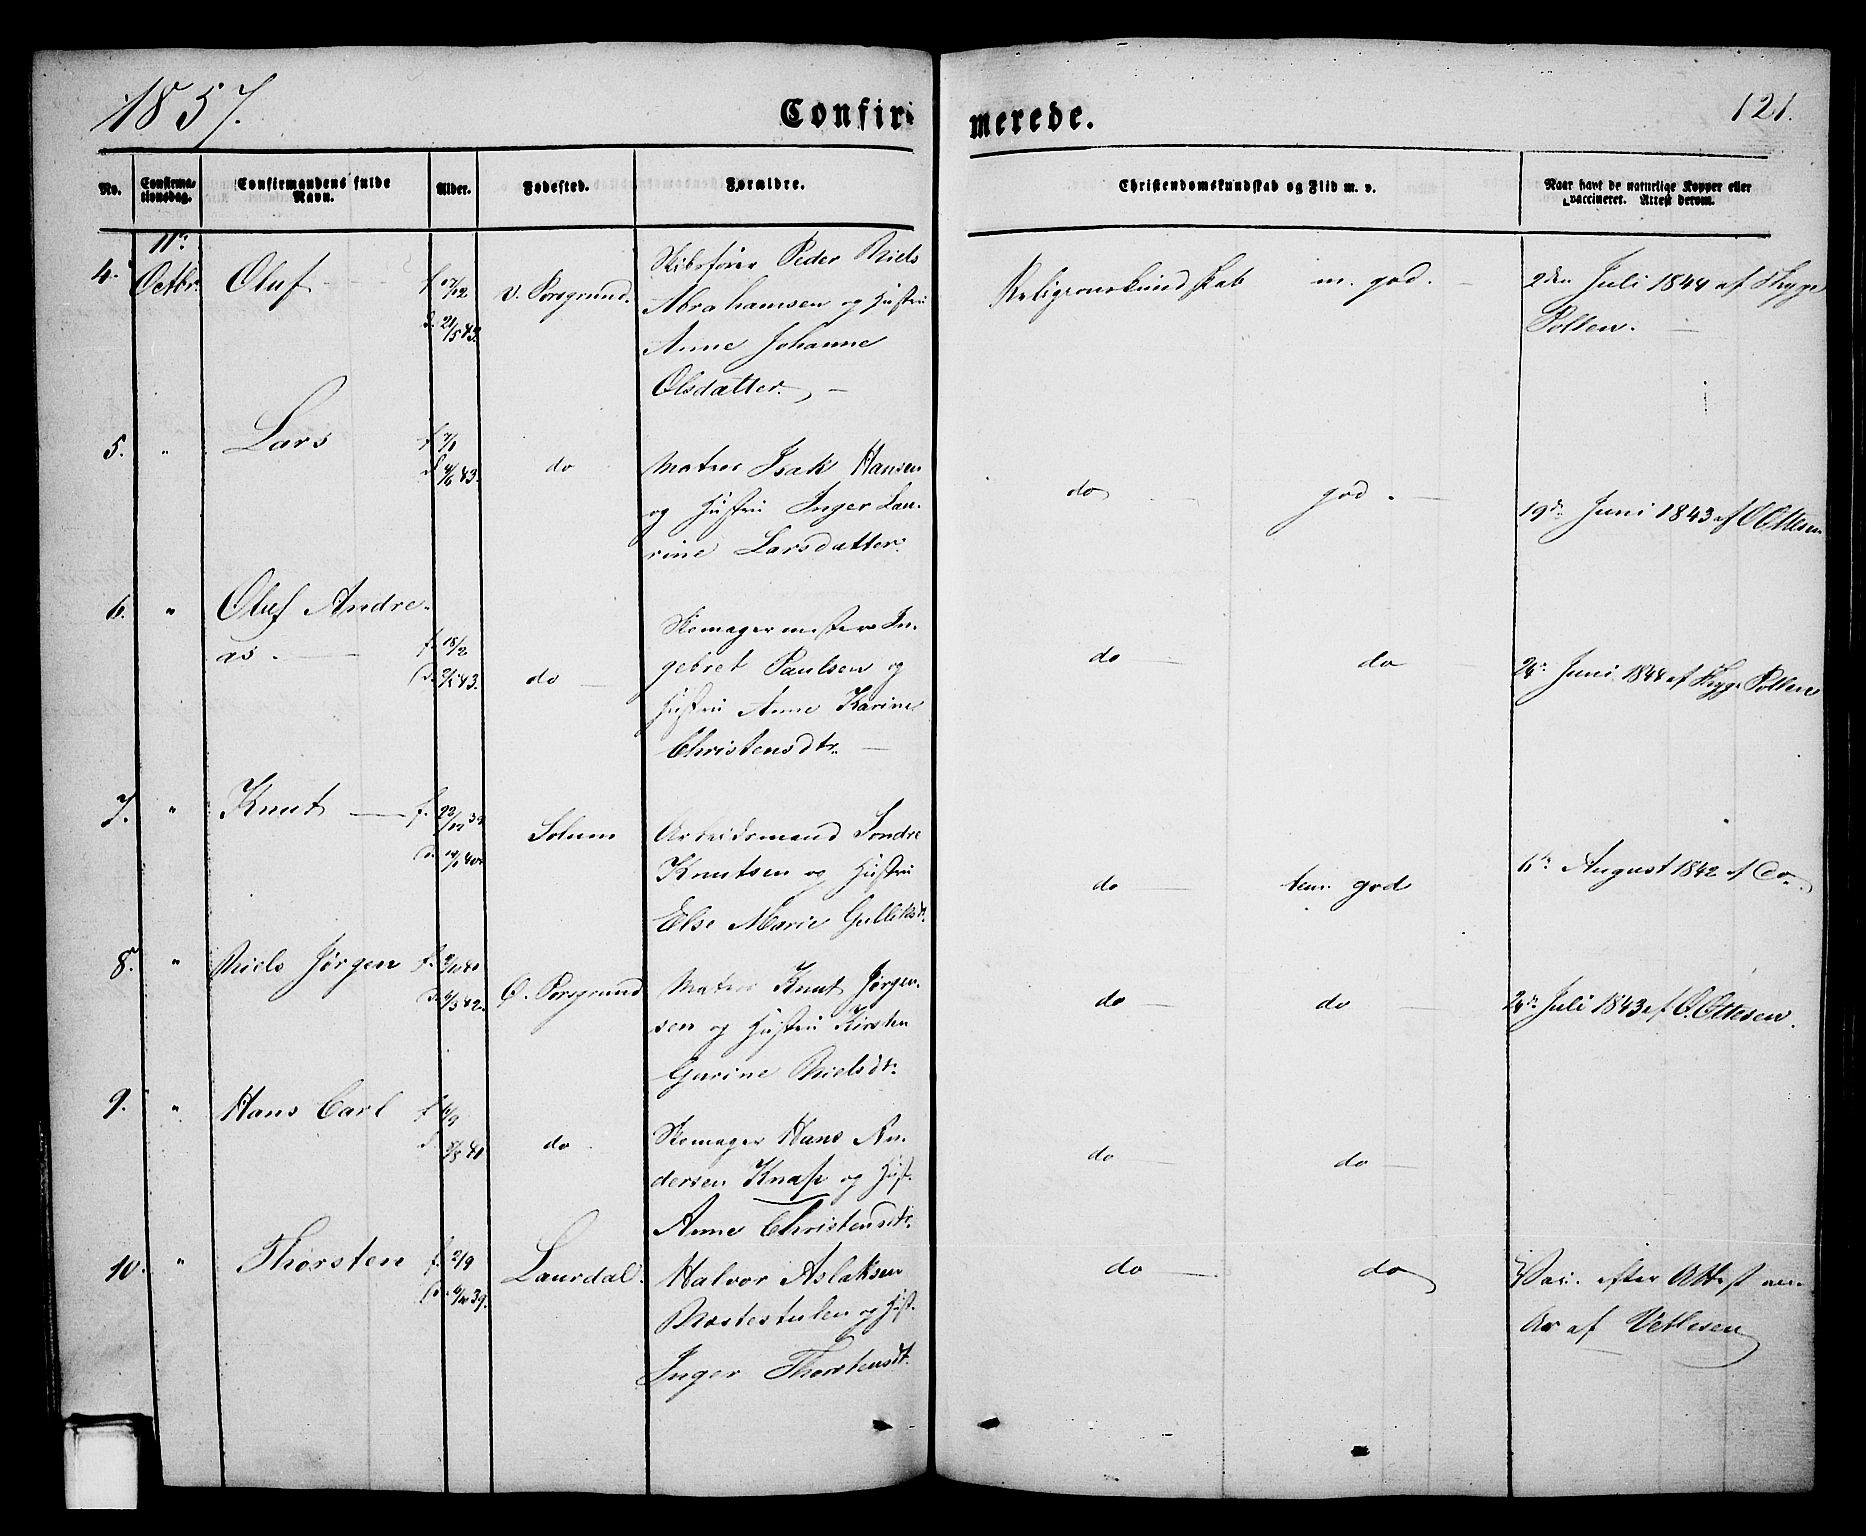 1857.
Confir-
merede.
121.
No.
Confirma-
tionsdag.
Confirmandens fulde
Navn.
Alder.
Fødested.
Forældre.
Christendomskundskab og Flid m. v.
Naar havt de naturlige Kopper eller
vaccineret. Attest derom.
4.
11te
Octbr.
Oluf
f. 17/12
d. 21/5 43.
V. Porsgrund.
Skibsfører Peder Niels
Abrahamsen og Hustru
Anne Johanne
Olsdatter.
Religionskundskab m. god.
2den Juli 1844 af Thyge
Polten.
5.
"
Lars
do
Matros Isak Hansen
og Hustru Inger Lau-
rine Larsdatter.
do god.
19de Juni 1843 af O. Ottesen
6.
"
Oluf Andre-
as.
f. 18/2
do
Skomagermester In-
gebret Paulsen og
Hustru Anne Karine
Christensdtr.
do do
Juni 1844 af Thyge Polten
7.
"
Knut
f. 22/12 39
Solum
Arbeidsmand Sondre
Knutsen og Hustru
Else Marie Gulliksdtr.
do tem. god
6te August 1842 af Do.
8.
"
Niels Jørgen
Ø. Porsgrund
Matros Knut Jørgen-
sen og Hustru Kirsten
Gurine Nielsdtr.
do do
Juli 1843 af O. Ottesen.
9.
"
Hans Carl
do
Skomager Hans An-
dersen Knap og Hust.
Anne Christensdtr.
do do
10.
"
Thorsten
f. 2/9
Laurdal.
Halvor Aslaksen
Næstestulen og Hust.
Inger Thorstensdt.
do do
Vac. efter Attest
af Vetlesen